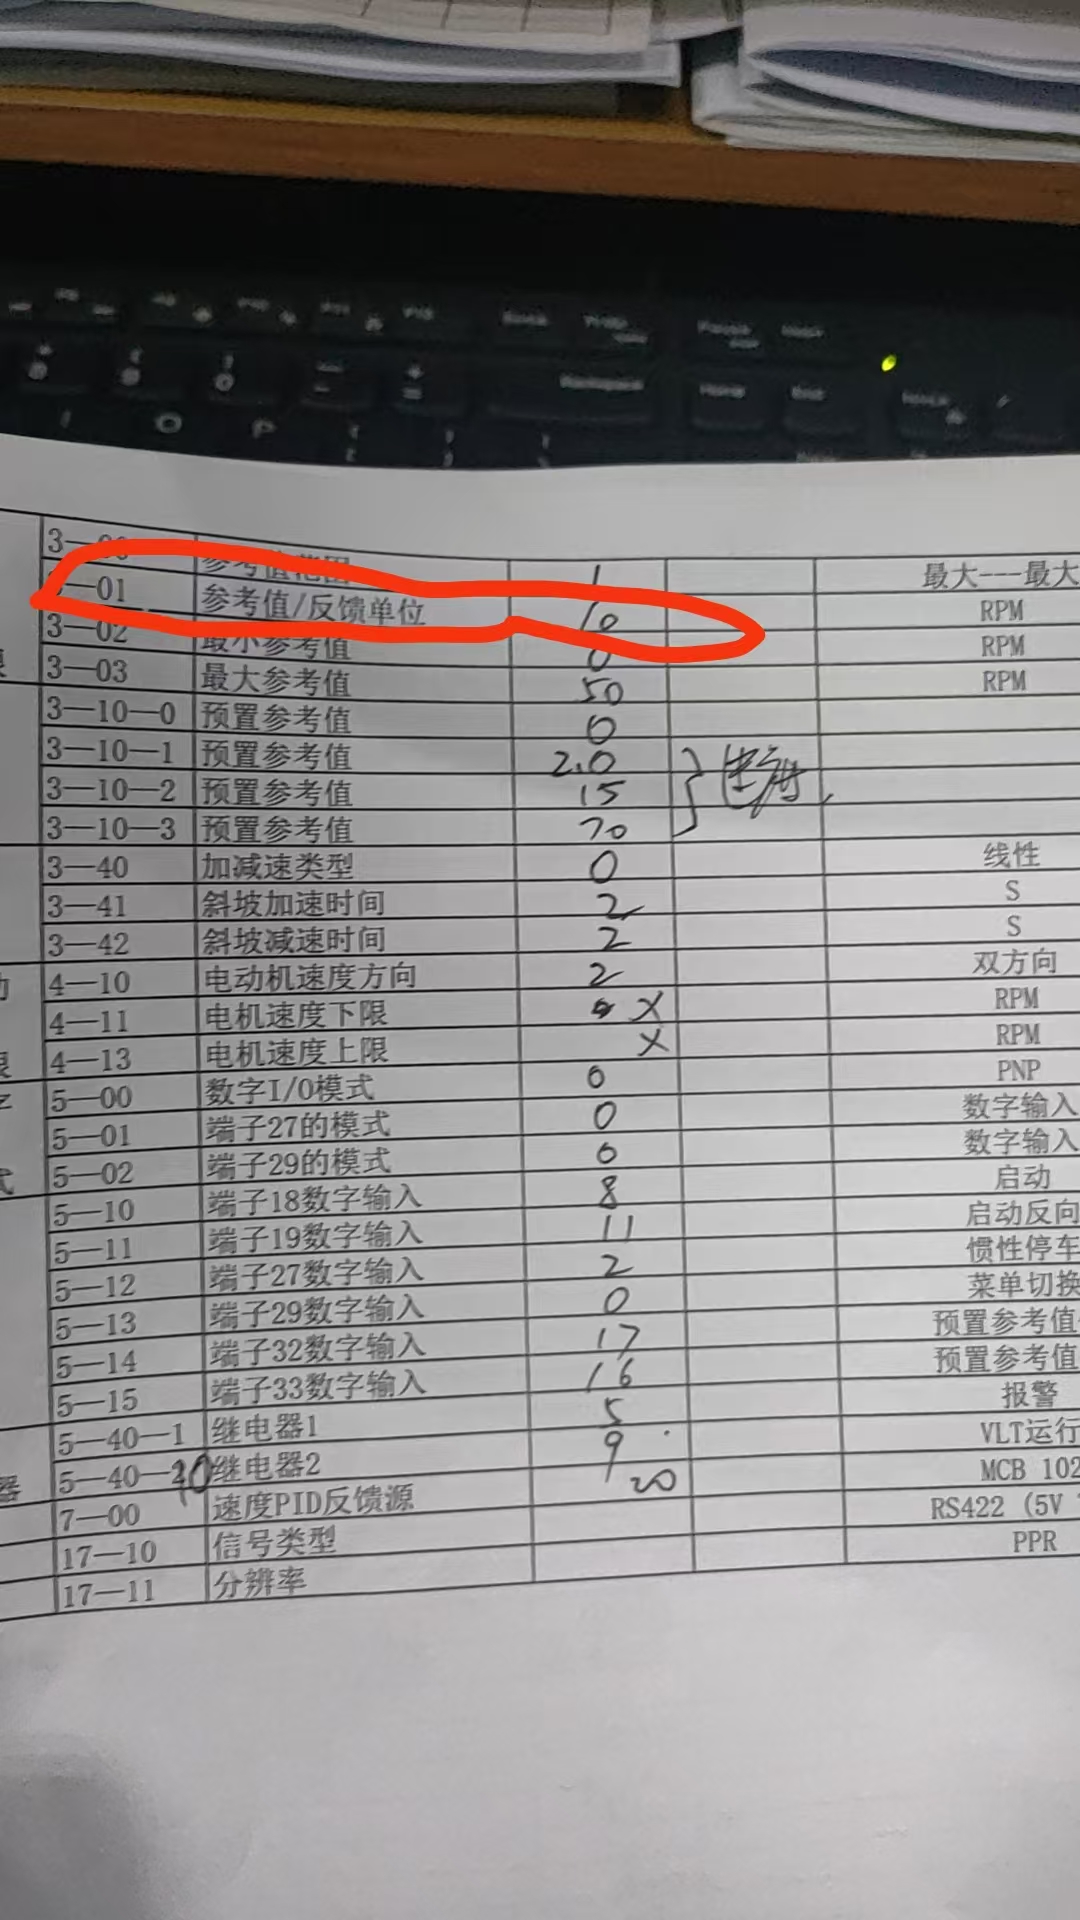 3—00 参考值范围 1 最大---最大
—01 参考值/反馈单位 10 RPM
3—02 最小参考值 0 RPM
3—03 最大参考值 50 RPM
3—10—0 预置参考值 0
3—10—1 预置参考值 2.0
3—10—2 预置参考值 15
3—10—3 预置参考值 70
3—40 加减速类型 0 线性
3—41 斜坡加速时间 2 S
3—42 斜坡减速时间 2 S
4—10 电动机速度方向 2 双方向
4—11 电机速度下限 X RPM
4—13 电机速度上限 X RPM
5—00 数字I/O模式 0 PNP
5—01 端子27的模式 0 数字输入
5—02 端子29的模式 0 数字输入
5—10 端子18数字输入 8 启动
5—11 端子19数字输入 11 启动反向
5—12 端子27数字输入 2 惯性停车
5—13 端子29数字输入 0 菜单切换
5—14 端子32数字输入 17 预置参考值
5—15 端子33数字输入 16 预置参考值
5—40—1 继电器1 5 报警
5—40— 继电器2 9 VLT运行
7—00 速度PID反馈源 20 MCB 102
17—10 信号类型 RS422 (5V
17—11 分辨率 PPR